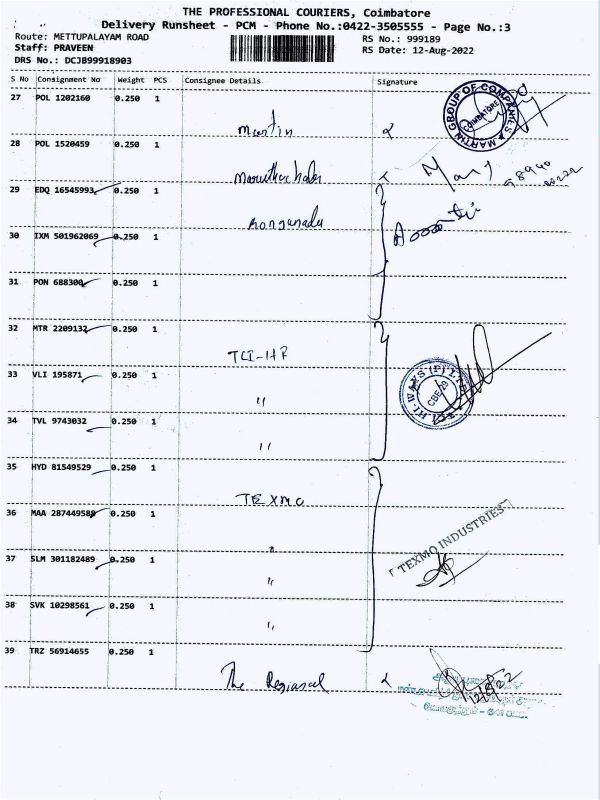 THE PROFESSIONAL COURIERS, Coimbatore
Delivery Runsheet - PCM - Phone No.:0422-3505555 - Page No.:3
Route: METTUPALAYAM ROAD
RS No.: 999189
Staff: PRAVEEN
RS Date: 12-Aug-2022
DRS No.: DCJB99918903
S No Consignment No Weight PCS Consignee Details Signature
27 POL 1202160 0.250 1
Martin
MARTIN GROUP OF COMPANIES
COIMBATORE
28 POL 1520459 0.250 1
29 EDQ 16545993 0.250 1
30 IXM 501962069 0.250 1
31 PON 688300 0.250 1
32 MTR 2209132 0.250 1
TCI-HR
33 VLI 195871 0.250 1
"
HI-WAYS (P) LTD
CBE-29
34 TVL 9743032 0.250 1
"
35 HYD 81549529 0.250 1
TEXMO
36 MAA 287449588 0.250 1
"
TEXMO INDUSTRIES
37 SLM 301182489 0.250 1
"
38 SVK 10298561 0.250 1
"
39 TRZ 56914655 0.250 1
The